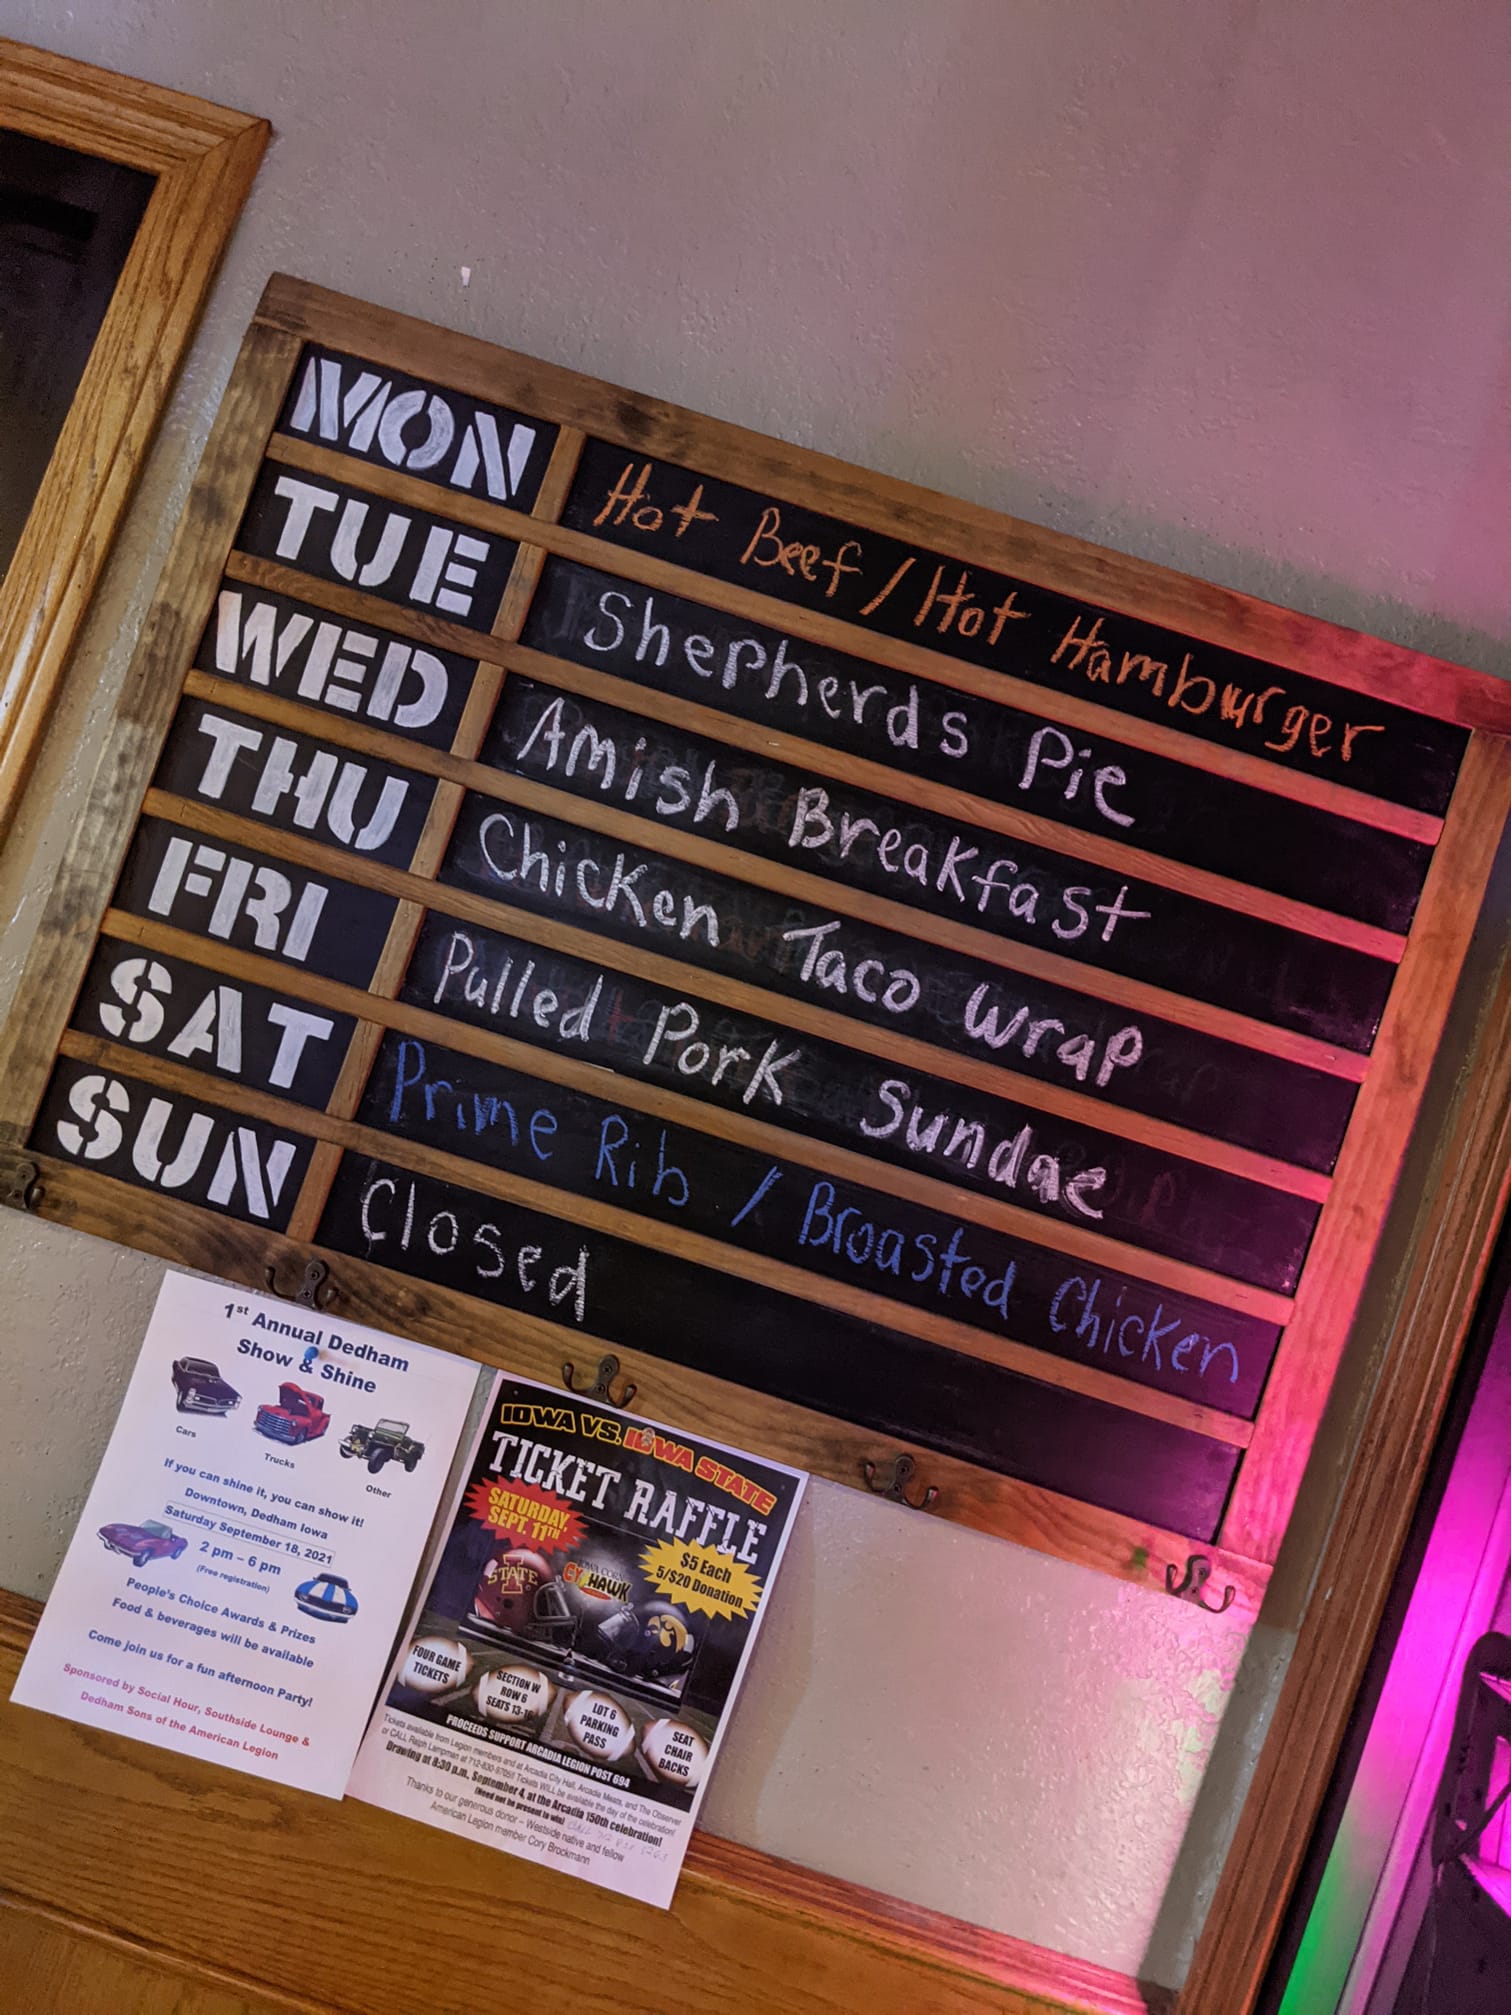 MON Hot Beef / Hot Hamburger
TUE Shepherds Pie
WED Amish Breakfast
THU Chicken Taco Wrap
FRI Pulled Pork Sundae
SAT Prime Rib / Broasted Chicken
SUN Closed
1st Annual Dedham
Show & Shine
Cars
Trucks
Other
If you can shine it, you can show it!
Downtown, Dedham Iowa
Saturday September 18, 2021
2 pm – 6 pm
(Free registration)
People's Choice Awards & Prizes
Food & beverages will be available
Come join us for a fun afternoon Party!
Sponsored by Social Hour, Southside Lounge &
Dedham Sons of the American Legion
IOWA VS. IOWA STATE
TICKET RAFFLE
SATURDAY,
SEPT. 11TH
$5 Each
5/$20 Donation
STATE
IOWA CORN
CY HAWK
FOUR GAME
TICKETS
SECTION W
ROW 6
SEATS 13-16
LOT 6
PARKING
PASS
SEAT
CHAIR
BACKS
PROCEEDS SUPPORT ARCADIA LEGION POST 694
Tickets available from Legion members and at Arcadia City Hall, Arcadia Meats, and The Observer
or CALL Ralph Lampman at 712-830-9705!! Tickets WILL be available the day of the celebration!
Drawing at 8:30 p.m., September 4, at the Arcadia 150th celebration!
(Need not be present to win)
Thanks to our generous donor – Westside native and fellow
American Legion member Cory Brockmann